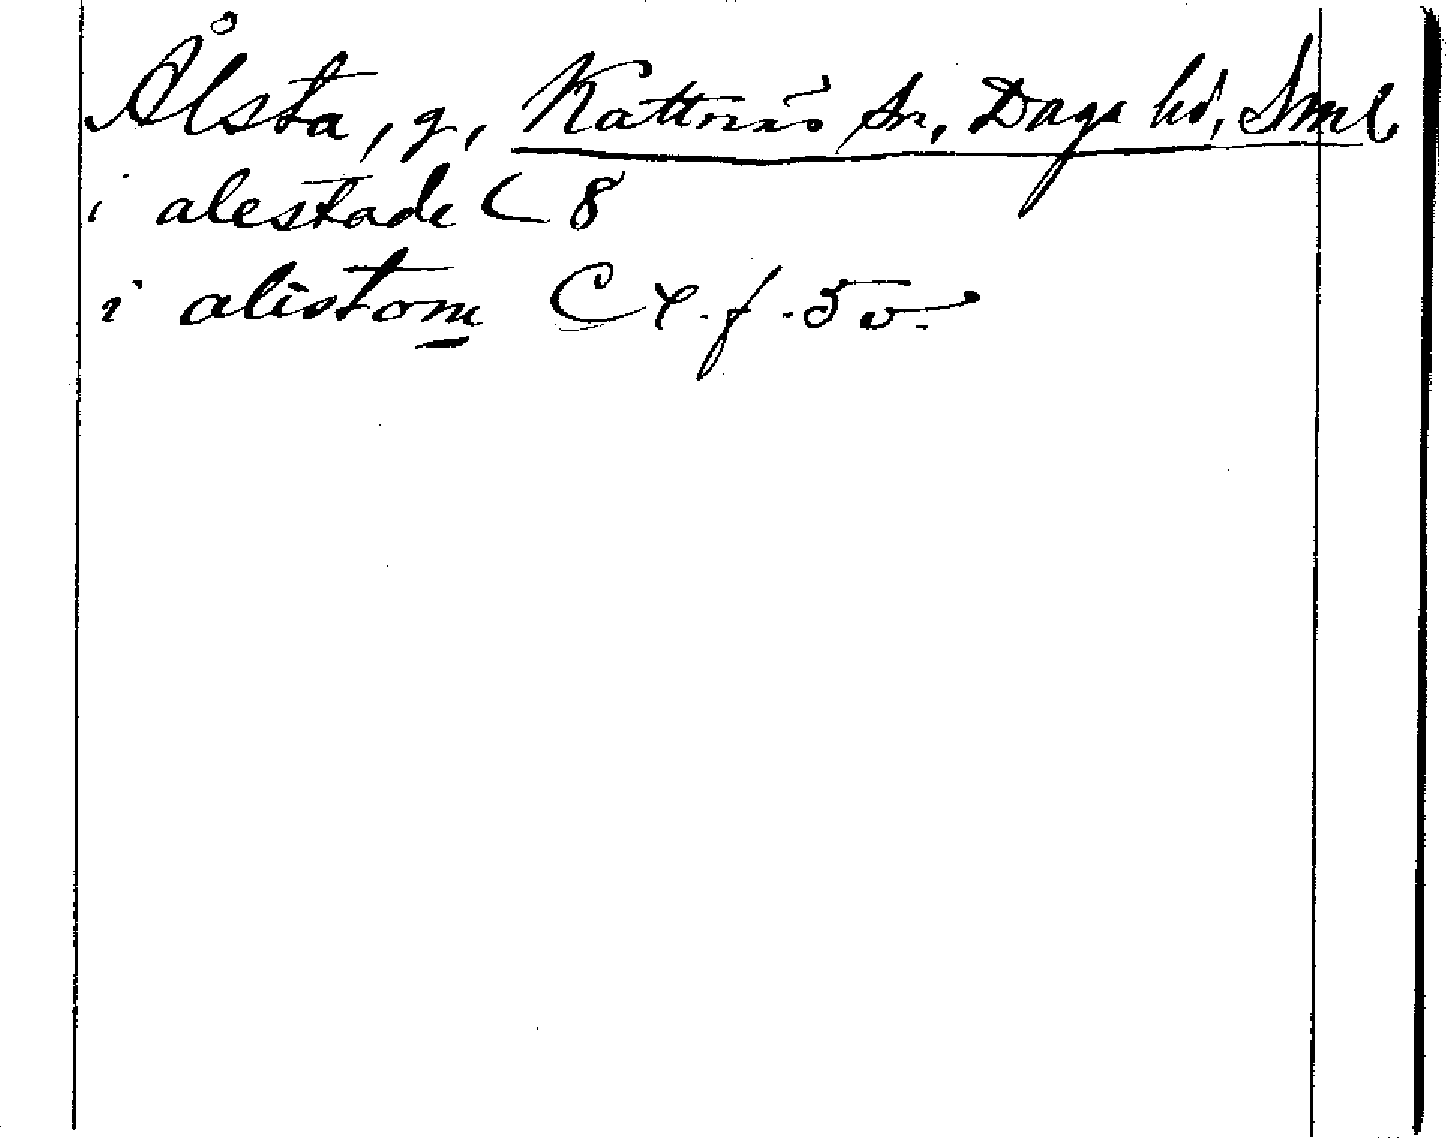 Ålsta, g, Kattnäs sn, Daga hd, Sml
i alestade C 8
i alistom C 4. f. 5 v.